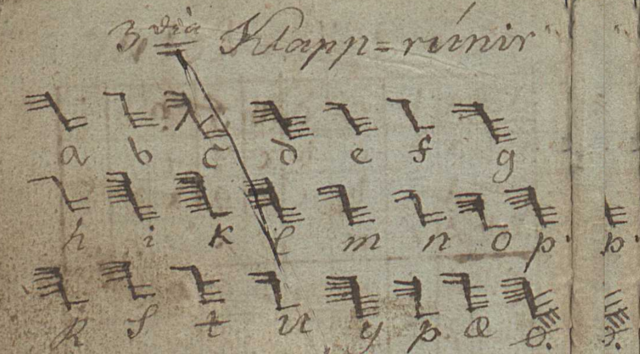 3 Klapp=rúnir
a b c d e f g
h i k l m n o p.
R s t u y þ æ ö.